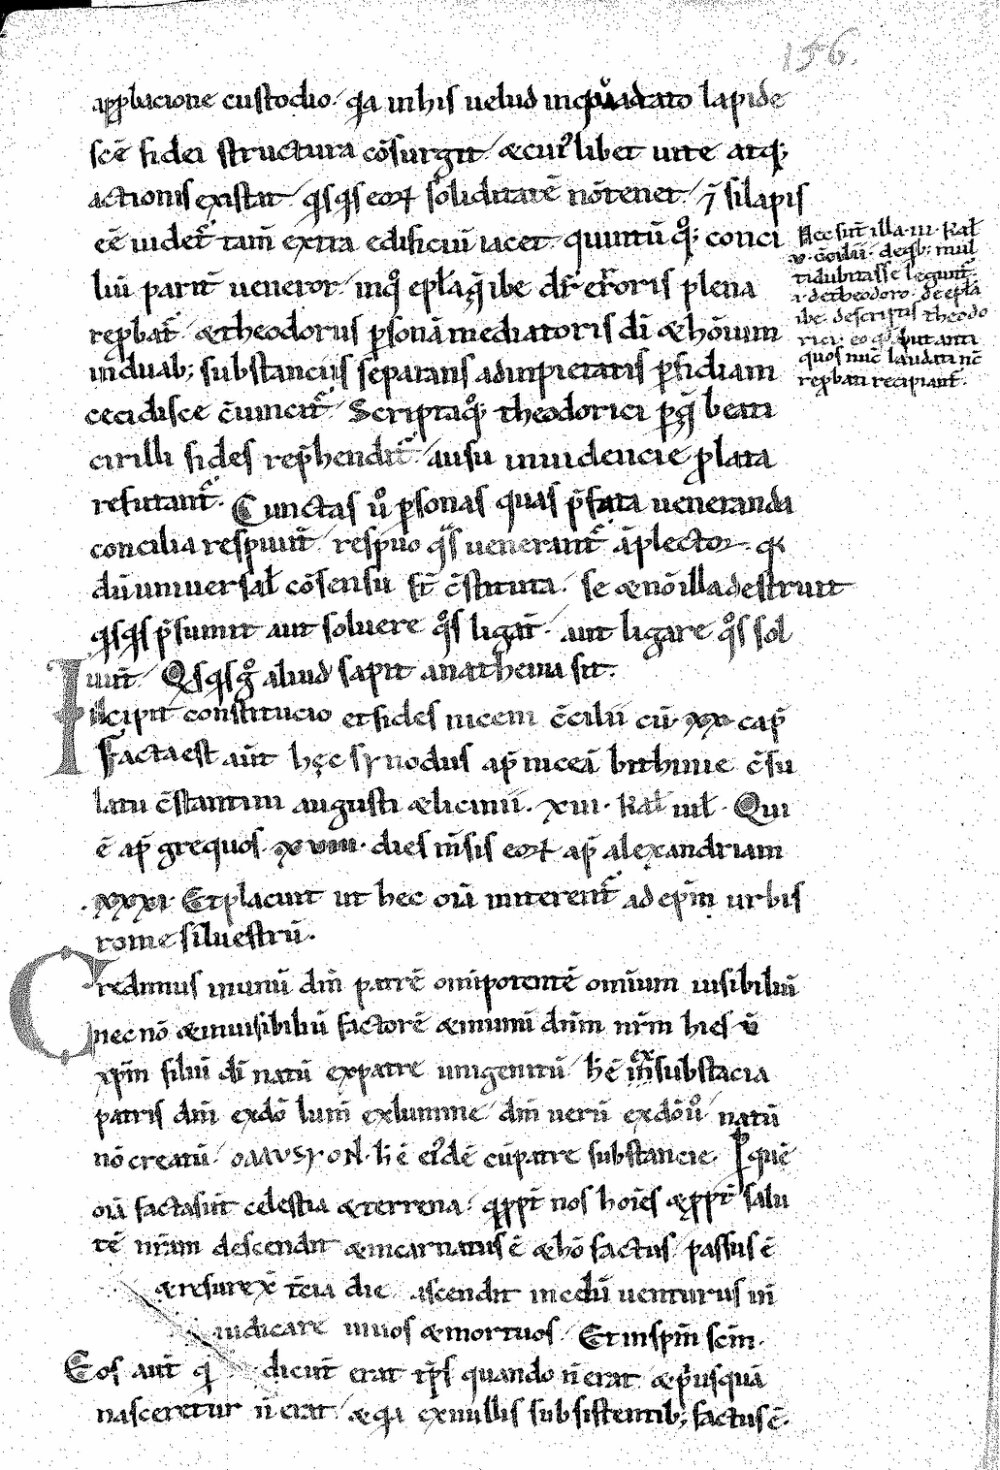 156.
app̄bacione custodio. q̄a inhis uelud inquadrato lapide
sc̄e fidei structura cōsurgit / ⁊cui᷒libet uite atq;
actionis existit / q̄sq̄s eoꝝ soliditatē nōtenet / ⁊̄ si lapis
eē uidet᷑ tam̄ extra edificiū iacet. quintū q̊q; conci
liū parit̄ ueneror / inq̊ ep̄la q̄ ibe dr̄ erroris plena
rep̄bat᷑ / ⁊theodorus ꝑsonā mediatoris dī ⁊hōium
induab; substanciis separans adinpietatis ꝑfidiam
cecidisce c̄uincit᷑ / Scripta q̊q; theodorici ꝑ q̄ beati
cirilli fides rep̄hendit᷑ / ausu inuidencie p̄lata
refutant᷑. Cunctas ů ꝑsonas quas p̄fata ueneranda
concilia respuut̄ / respuo q̄s uenerant᷑ āplector. q̄
dū uniuersal̄ cōsensu st̄ c̄stituta. se ⁊nō illa destruit
q̄sq̄s p̄sumit aut soluere q̊s ligat̄. aut ligare q̊s sol
uut̄ / Qsq̄s g̊ aliud sapit anathema sit.
Incipit constitucio et fides niceni c̄cilii cū. xx. cap̄
Facta est aūt hęc synodus ap̄ niceā bithinie c̄su
latu c̄stantini augusti ⁊licinii. xiii. kal̄ iul̄. Qui
ē ap̄ grequos. xviiii. dies m̄sis eoꝝ ap̄ alexandriam
.xxxi. Et placuit ut hec oīa mitterent᷑ ad ep̄m urbis
rome siluestrū.
Credimus inunū dm̄ patrē omīpotentē omīum uisibiliū
nec nō ⁊inuisibiliū factorē ⁊inunū dnm̄ nr̄m hiesū
xp̄m filiū dī natū expatre unigenitū / h̄ ē substācia
patris dm̄ exdō lum̄ exlumine / dm̄ uerū exdō ů natū
nō creatū / h̄ ē ei᷒dē cūpatre substancie. ꝑ quē
oīa facta sūt celestia ⁊terrena. q̄ ꝓpt̄ nos hoīes ⁊ꝓpt̄ salu
tē nr̄am descendit ⁊incarnatus ē ⁊hō factus passus ē
⁊resurex̄ t̄cia die ascendit incelū uenturus in̄
iudicare uiuos ⁊mortuos. Et in sp̄m sc̄m.
Eos aut̄ q̄ dicūt erat tp̄s quando n̄ erat ⁊p̄usquā
nasceretur n̄ erat / ⁊q̄a exnullis subsistentib; factus ē.
Hec sūt illa .iii. kal̄
v. c̄cilii. de qb; mul
ti dubitasse legunt᷑.
i. de theodoro. de ep̄la
ibe. descriptis theodo
rici. eo qd̄ sūt anti
quos nūc laudati nc̄
rep̄bati recipiant᷑.